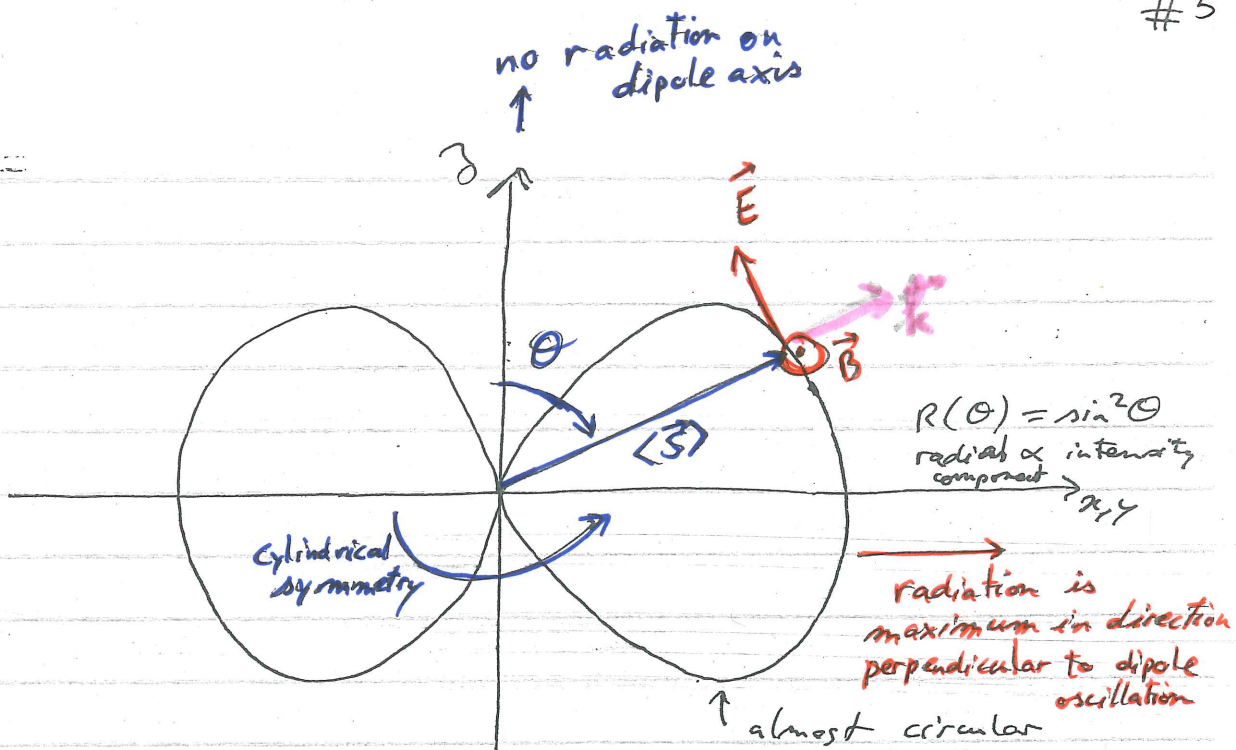 #5
no radiation on
dipole axis
z
E
k
B
θ
⟨S⟩
R(θ) = sin²θ
radial ∝ intensity
component
x, y
cylindrical
symmetry
radiation is
maximum in direction
perpendicular to dipole
oscillation
almost circular